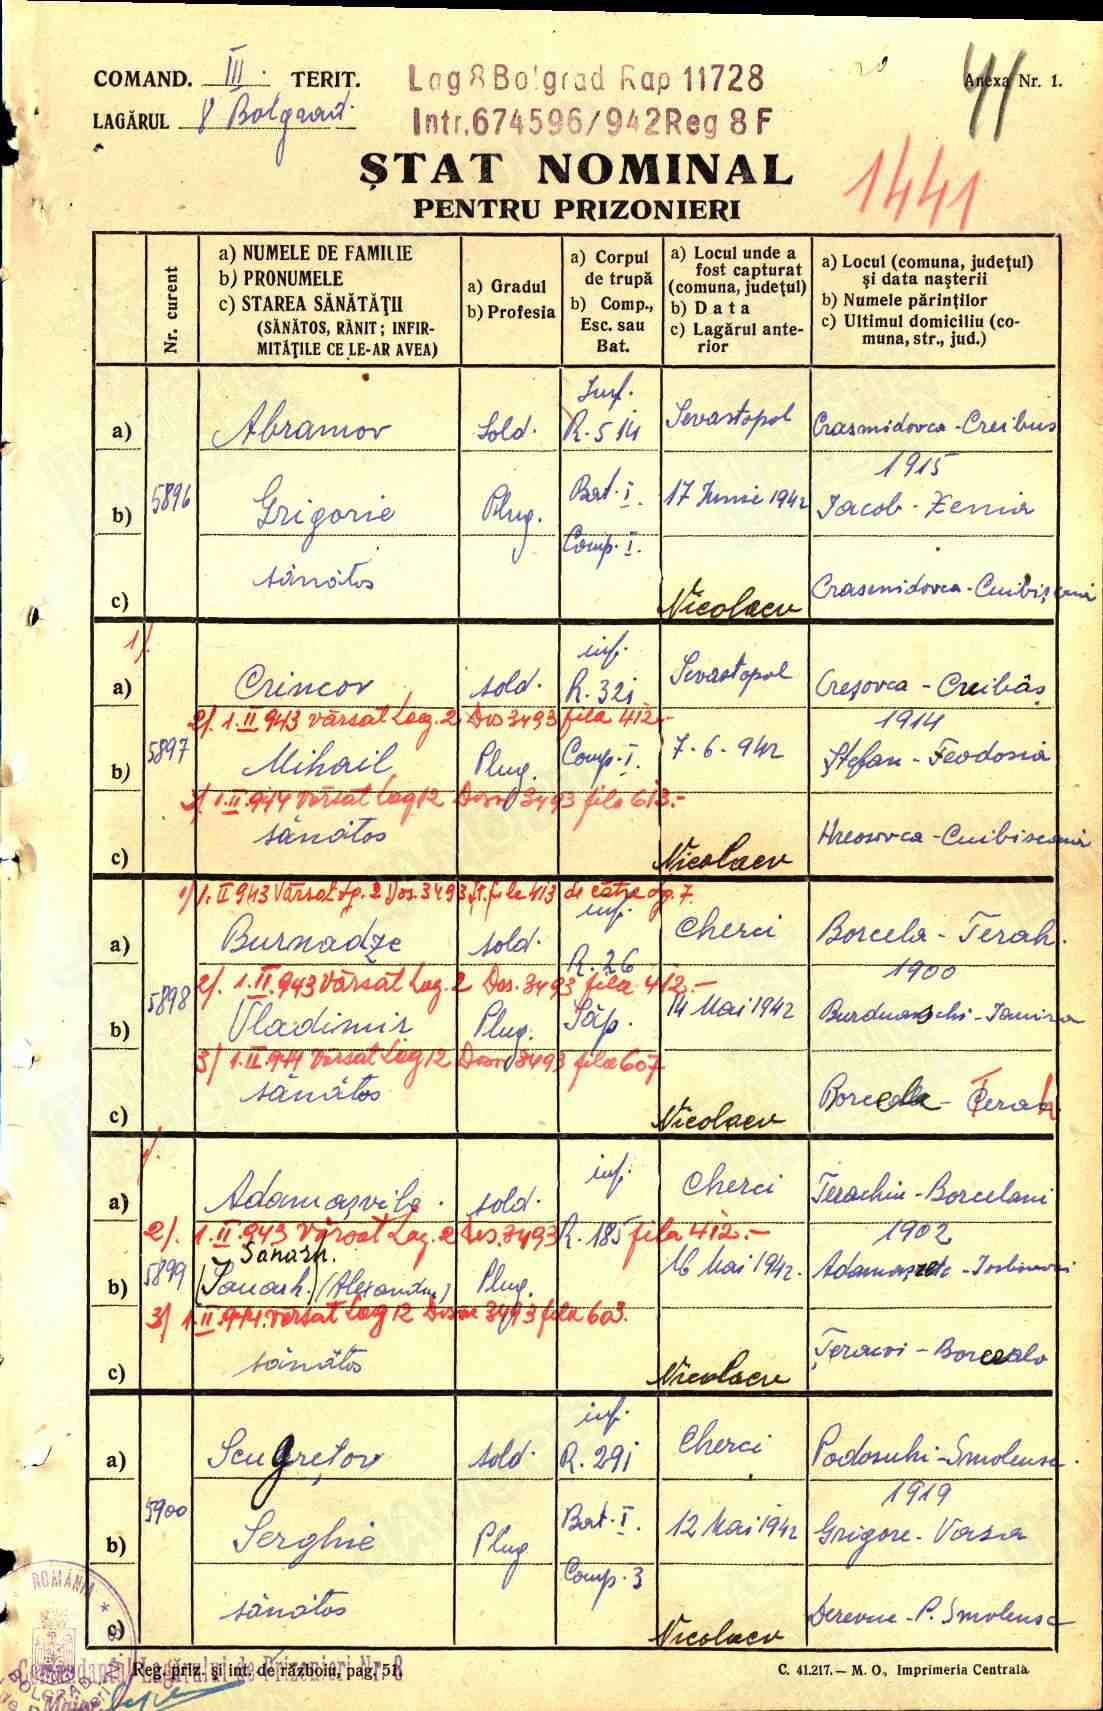 COMAND. III. TERIT.
Lag 8 Bolgrad Rap 11728
Anexa Nr. 1.
LAGĂRUL 8 Bolgrad.
Intr. 674596/942 Reg 8 F
ȘTAT NOMINAL
PENTRU PRIZONIERI
1441
Nr. curent
a) NUMELE DE FAMILIE
b) PRONUMELE
c) STAREA SĂNĂTĂȚII
(SĂNĂTOS, RĂNIT; INFIR-
MITĂȚILE CE LE-AR AVEA)
a) Gradul
b) Profesia
a) Corpul
de trupă
b) Comp.,
Esc. sau
Bat.
a) Locul unde a
fost capturat
(comuna, județul)
b) Data
c) Lagărul ante-
rior
a) Locul (comuna, județul)
și data nașterii
b) Numele părinților
c) Ultimul domiciliu (co-
muna, str., jud.)
Inf.
a) Abramov Sold. R. 514 Sevastopol Crasmidovca - Creibus
1915
5896 b) Grigorie Plug. Bat. I. 17 Iunie 1942 Iacob - Xenia
Comp. I.
c) sănătos Nicolaev Crasmidovca
1).
inf.
a) Crincov sold. R. 321 Sevastopol Creșovca - Creibâș
2). 1.II.943 vărsat Lag. 2 Dos 3493 fila 412.-
1914
5897 b) Mihail Plug. Comp. I. 7-6-942 Ștefan - Feodosia
3) 1.II.944 vărsat Lag 12 Dosar 3493 fila 613.-
c) sănătos Nicolaev Hreosovca
1) 1.II 943 Vărsat lg. 2 Dos. 3493 fila 413 de către lg. 7.
inf.
a) Burnadze sold. R. 26 Cherci Borcela - Terah.
2). 1.II.943 Vărsat Lag. 2 Dos. 3493 fila 412.-
1900
5898 b) Vladimir Plug. Săp. 14 Mai 1942
3) 1.II.944 Vărsat Lag 12 Dosar 3493 fila 607
c) sănătos Nicolaev Borcela - Terah
1.
inf.
a) Adamașvile. sold. Cherci Terachiu - Borcelani
2). 1.II.943 Vărsat Lag. 2 Dos. 3493 R. 185 fila 412.-
1902
Sanash.
5899 b) (Sanash) (Alexandru) Plug. 16 Mai 1942.
3) 1.II.944. vărsat Lag 12 Dosar 3493 fila 603.
c) sănătos Nicolaev Țeracvi - Borcealo
inf.
a) Scugrețov sold. R. 291 Cherci Podosuhi - Smolensc.
1919
5900 b) Serghie Plug Bat. I. 12 Mai 1942 Grigore - Vasa
Comp. 3
c) sănătos Nicolaev Derevne - P. Smolensc
ROMÂNIA
Comandantul Lagărului de Prizonieri Nr. 8
Reg. priz. și int. de război, pag. 51.
C. 41.217.— M. O., Imprimeria Centrală.
Maior